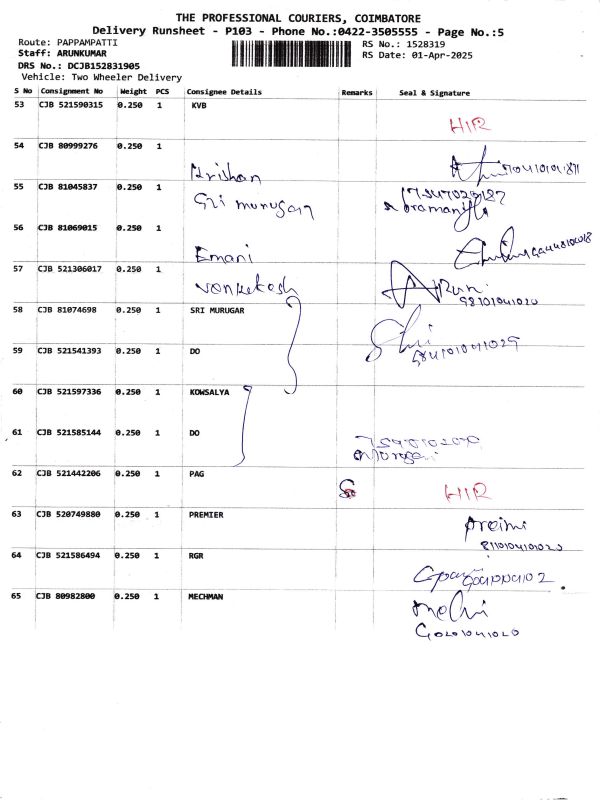 THE PROFESSIONAL COURIERS, COIMBATORE
Delivery Runsheet - P103 - Phone No.:0422-3505555 - Page No.:5
Route: PAPPAMPATTI RS No.: 1528319
Staff: ARUNKUMAR RS Date: 01-Apr-2025
DRS No.: DCJB152831905
Vehicle: Two Wheeler Delivery
S No Consignment No Weight PCS Consignee Details Remarks Seal & Signature
53 CJB 521590315 0.250 1 KVB
HIR
54 CJB 80999276 0.250 1
Krishan
55 CJB 81045837 0.250 1
Sri murugan
56 CJB 81069015 0.250 1
Emani
57 CJB 521306017 0.250 1 Venkatesh
58 CJB 81074698 0.250 1 SRI MURUGAR
59 CJB 521541393 0.250 1 DO
60 CJB 521597336 0.250 1 KOWSALYA
61 CJB 521585144 0.250 1 DO
62 CJB 521442206 0.250 1 PAG
HIR
63 CJB 520749880 0.250 1 PREMIER
64 CJB 521586494 0.250 1 RGR
65 CJB 80982800 0.250 1 MECHMAN